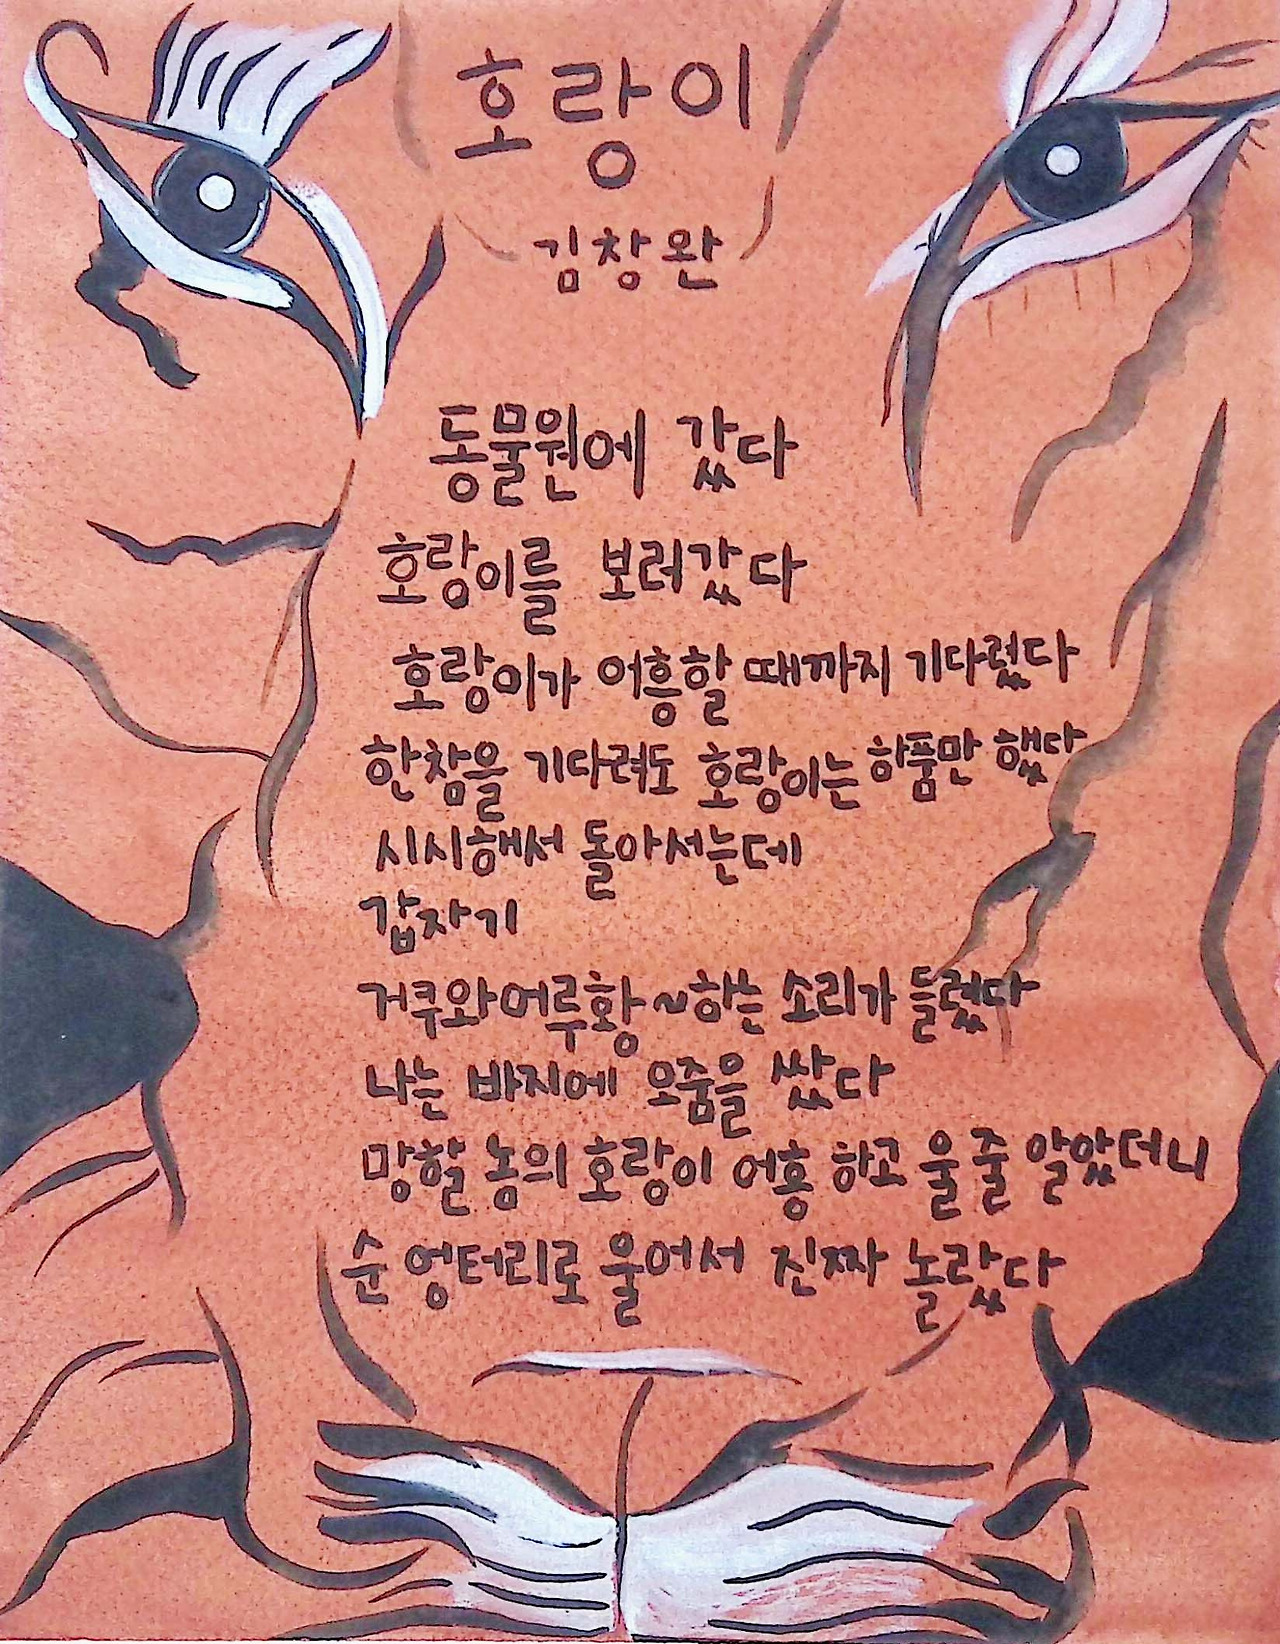 호랑이
김창완
동물원에 갔다
호랑이를 보러갔다
호랑이가 어흥할 때까지 기다렸다
한참을 기다려도 호랑이는 하품만 했다
시시해서 돌아서는데
갑자기
거쿠와어루황~하는 소리가 들렸다
나는 바지에 오줌을 쌌다
망할 놈의 호랑이 어흥 하고 울 줄 알았더니
순 엉터리로 울어서 진짜 놀랐다